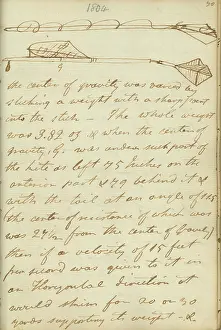 1804
the center of gravity was varied by
sticking a weight with a sharp point
into the stick — The whole weight
was 3.82 oz & when the center of
gravity, G. was under such part of
the kite as left 75 Inches on the
anterior part & 79 behind it &
with the tail at an angle of 11.5
the center of resistance of which was
was 27 from the center of Gravity
then if a velocity of 15 feet
per second was given to it in
an Horizontal direction it
would skim for 20 or 30
yards supporting its weight - &